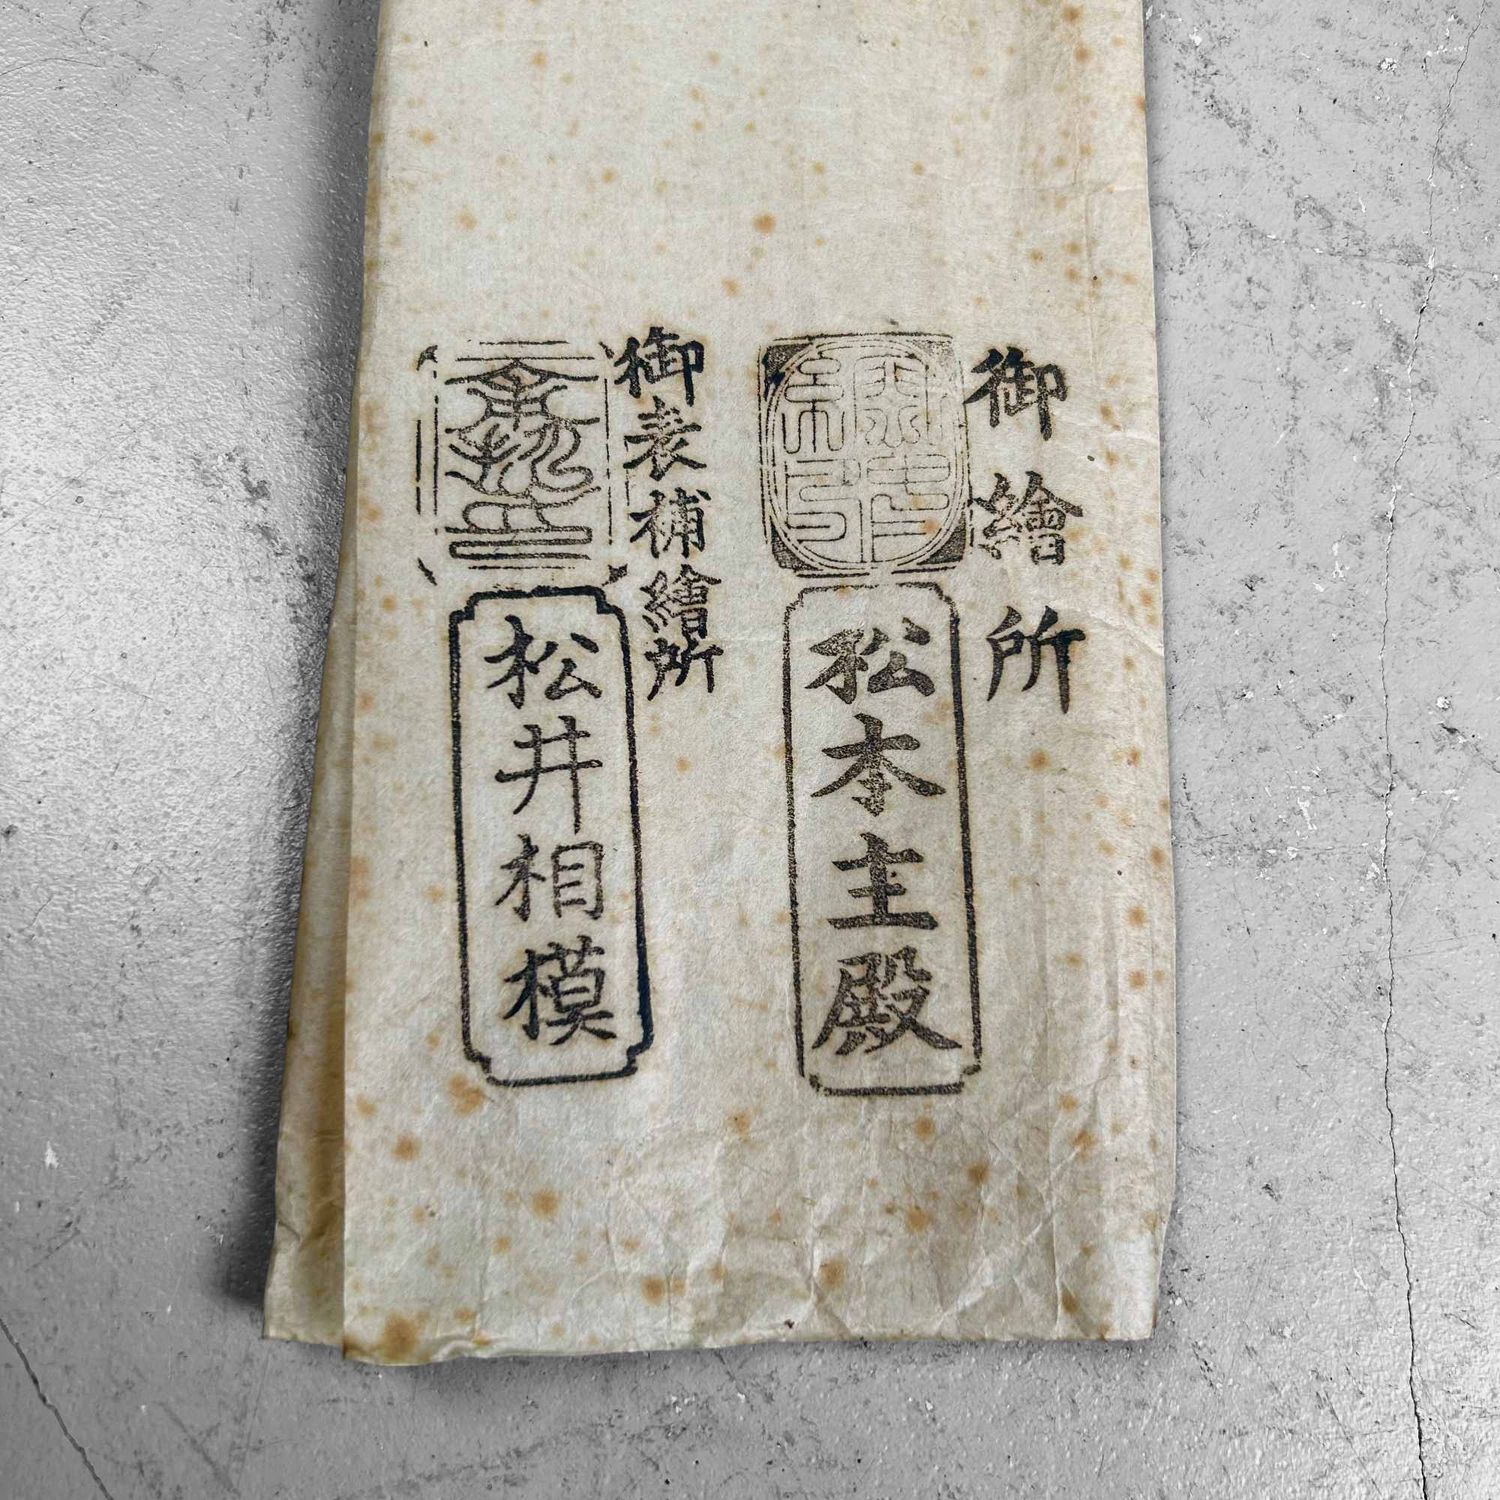 御繪所
松本主殿
御表補繪所
松井相模